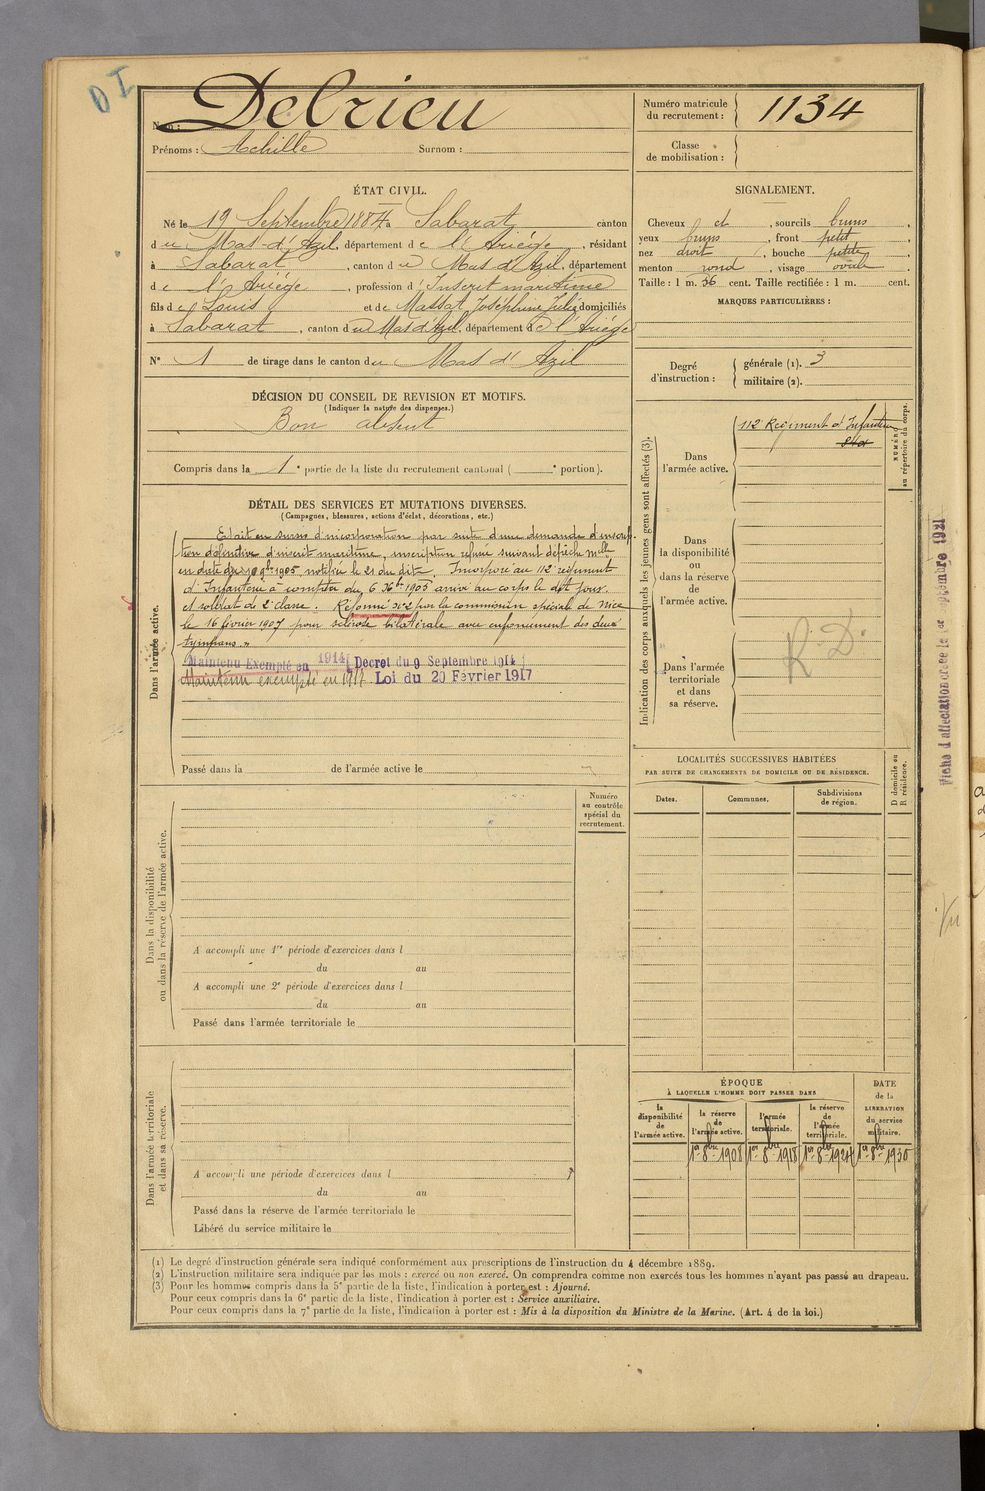 D I
Nom : Delrieu
Prénoms : Achille Surnom :
Numéro matricule du recrutement : 1134
Classe de mobilisation :
ÉTAT CIVIL.
Né le 19 Septembre 1884 à Sabarat canton
du Mas-d'Azil, département de l'Ariège, résidant
à Sabarat, canton du Mas d'Azil, département
de l'Ariège, profession d'Inscrit maritime
fils de Louis et de Massat Joséphine Julie domiciliés
à Sabarat, canton du Mas d'Azil, département de l'Ariège
N° 1 de tirage dans le canton du Mas d'Azil
SIGNALEMENT.
Cheveux et, sourcils bruns,
yeux bruns, front petit,
nez droit, bouche petite,
menton rond, visage ovale
Taille : 1 m. 56 cent. Taille rectifiée : 1 m. cent.
MARQUES PARTICULIÈRES :
Degré d'instruction : générale (1). 3
militaire (2).
DÉCISION DU CONSEIL DE REVISION ET MOTIFS.
(Indiquer la nature des dispenses.)
Bon absent
Compris dans la 1e partie de la liste du recrutement cantonal ( e portion).
DÉTAIL DES SERVICES ET MUTATIONS DIVERSES.
(Campagnes, blessures, actions d'éclat, décorations, etc.)
Dans l'armée active.
Était en sursis d'incorporation par suite d'une demande d'inscrip-
tion définitive d'inscrit maritime, inscription refusée suivant dépêche mlle
en date du 10 9bre 1905, notifiée le 21 du dit. Incorporé au 112 régiment
d'Infanterie à compter du 6 Xbre 1905 arrivé au corps le dit jour.
et soldat de 2e classe. Réformé n°2 par la commission spéciale de Nice
le 16 février 1907 pour sclérose bilatérale avec enfoncement des deux
tympans."
Maintenu Exempté en 1914 ( Decret du 9 Septembre 1914 )
Maintenu exempté en 1917. Loi du 20 Février 1917
Passé dans la de l'armée active le
Indication des corps auxquels les jeunes gens sont affectés (3).
NUMÉRO au répertoire du corps.
Dans l'armée active.
112 Régiment d'Infanterie
Dans la disponibilité ou dans la réserve de l'armée active.
Dans l'armée territoriale et dans sa réserve.
R. D.
Fiche d'affectation créée le 1er Septembre 1921
LOCALITÉS SUCCESSIVES HABITÉES
PAR SUITE DE CHANGEMENTS DE DOMICILE OU DE RÉSIDENCE.
D domicile ou R résidence.
Dates. Communes. Subdivisions de région.
Numéro au contrôle spécial du recrutement.
Dans la disponibilité ou dans la réserve de l'armée active.
A accompli une 1re période d'exercices dans l
du au
A accompli une 2e période d'exercices dans l
du au
Passé dans l'armée territoriale le
Dans l'armée territoriale et dans sa réserve.
A accompli une période d'exercices dans l
du au
Passé dans la réserve de l'armée territoriale le
Libéré du service militaire le
ÉPOQUE
À LAQUELLE L'HOMME DOIT PASSER DANS
la disponibilité de l'armée active.
la réserve de l'armée active.
l'armée territoriale.
la réserve de l'armée territoriale.
DATE de la LIBÉRATION du service militaire.
1er 8bre 1908 1er 8bre 1918 1er 8bre 1924 1er 8bre 1930
(1) Le degré d'instruction générale sera indiqué conformément aux prescriptions de l'instruction du 4 décembre 1889.
(2) L'instruction militaire sera indiquée par les mots : exercé ou non exercé. On comprendra comme non exercés tous les hommes n'ayant pas passé au drapeau.
(3) Pour les hommes compris dans la 5e partie de la liste, l'indication à porter est : Ajourné.
Pour ceux compris dans la 6e partie de la liste, l'indication à porter est : Service auxiliaire.
Pour ceux compris dans la 7e partie de la liste, l'indication à porter est : Mis à la disposition du Ministre de la Marine. (Art. 4 de la loi.)
Vu